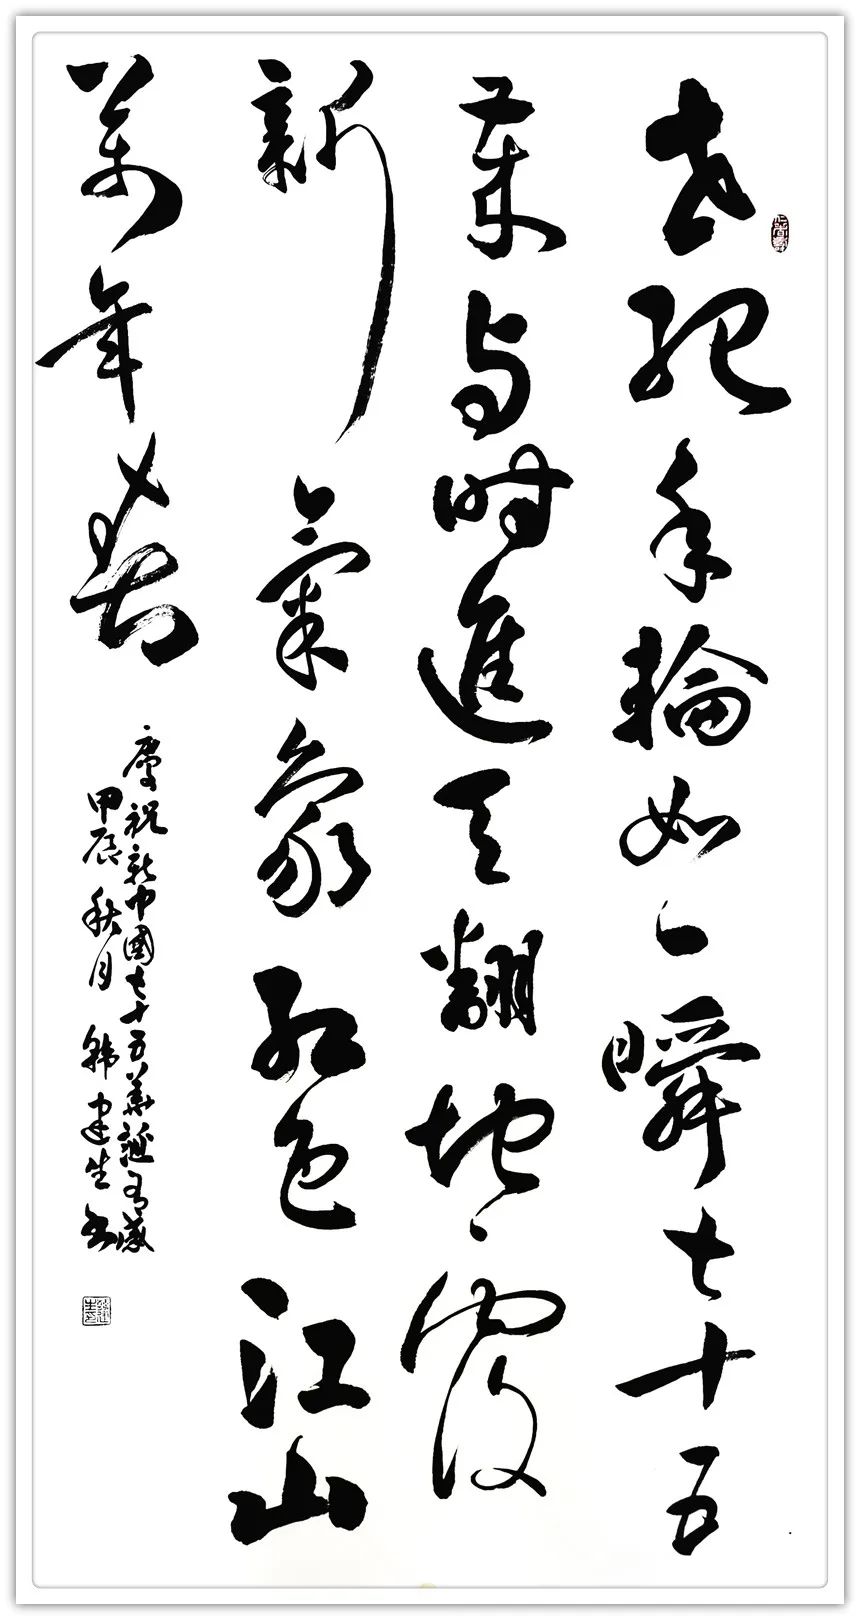 世纪年輪如一瞬七十五
载与时進天翻地覆
新氣象红色江山
萬年春
慶祝新中國七十五華誕有感
甲辰秋月韩建生书